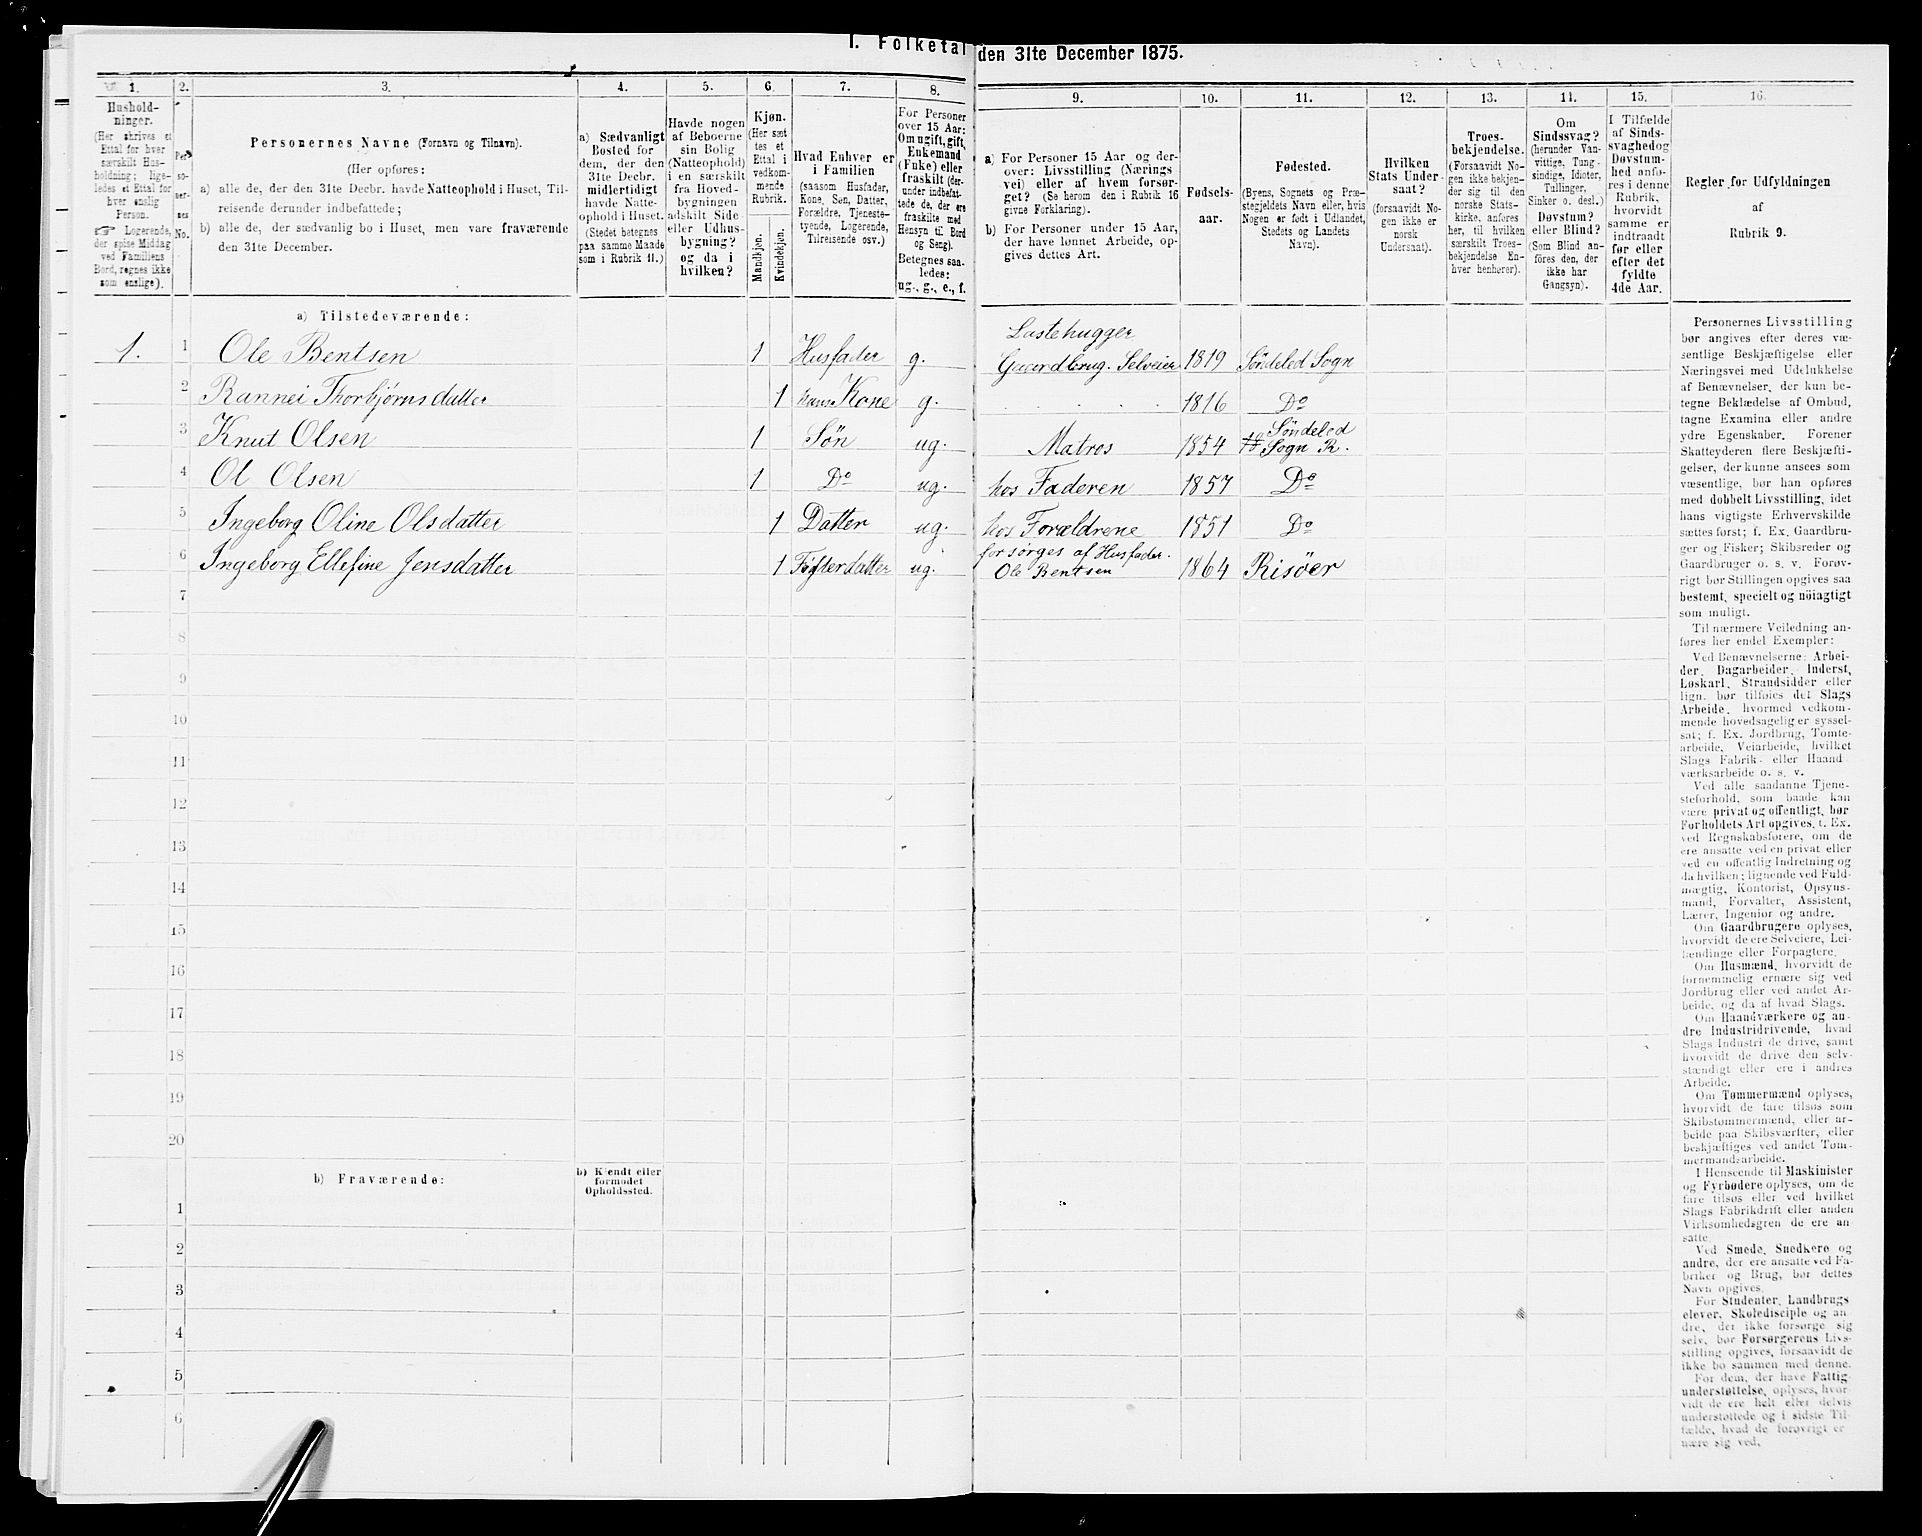 I. Folketal den 31te December 1875.
1. 2. 3. 4. 5. 6. 7. 8. 9. 10. 11. 12. 13. 14. 15. 16.
Hushold-
ninger.
(Her skrives et
Ettal for hver
særskilt Hus-
holdning; lige-
ledes et Ettal for
hver enslig
Person.
☞ Logerende,
der spise Middag
ved Familiens
Bord, regnes ikke
som enslige).
Per-
so-
ner-
nes
No.
Personernes Navne (Fornavn og Tilnavn).
(Her opføres:
a) alle de, der den 31te Decbr. havde Natteophold i Huset, Til-
reisende derunder indbefattede;
b) alle de, der sædvanlig bo i Huset, men vare fraværende
den 31te December.
a) Sædvanligt
Bosted for
dem, der den
31te Decbr.
midlertidigt
havde Natte-
ophold i Huset.
(Stedet betegnes
paa samme Maade
som i Rubrik 11.)
Havde nogen
af Beboerne
sin Bolig
(Natteophold)
i en særskilt
fra Hoved-
bygningen
adskilt Side-
eller Udhus-
bygning?
og da i
hvilken?
Kjøn.
(Her sæt-
tes et
Ettal i
vedkom-
mende
Rubrik.
Mandkjøn.
Kvindekjøn.
Hvad Enhver er
i Familien
(saasom Husfader,
Kone, Søn, Datter,
Forældre, Tjeneste-
tyende, Logerende,
Tilreisende osv.)
For Personer
over 15 Aar:
Om ugift, gift,
Enkemand
(Enke) eller
fraskilt (der-
under indbefat-
tede de, der ere
fraskilte med
Hensyn til Bord
og Seng).
Betegnes saa-
ledes:
ug., g., e., f.
a) For Personer 15 Aar og der-
over: Livsstilling (Nærings-
vei) eller af hvem forsør-
get? (Se herom den i Rubrik 16
givne Forklaring).
b) For Personer under 15 Aar,
der have lønnet Arbeide, op-
gives dettes Art.
Fødsels-
aar.
Fødested.
(Byens, Sognets og Præ-
stegjeldets Navn eller, hvis
Nogen er født i Udlandet,
Stedets og Landets
Navn).
Hvilken
Stats Under-
saat?
(forsaavidt No-
gen ikke er
norsk
Undersaat).
Troes-
bekjendelse.
(Forsaavidt No-
gen ikke bekjen-
der sig til den
norske Stats-
kirke, anføres
her, til hvilken
særskilt Troes-
bekjendelse En-
hver henhører).
Om
Sindssvag?
(herunder Van-
vittige, Tung-
sindige, Idioter,
Tullinger,
Sinker o. desl.)
Døvstum?
eller Blind?
(Som Blind an-
føres den, der
ikke har
Gangsyn).
I Tilfælde
af Sinds-
svaghed og
Døvstum-
hed anfø-
res i denne
Rubrik,
hvorvidt
samme er
indtraadt
før eller
efter det
fyldte
4de Aar.
Regler for Udfyldningen
af
Rubrik 9.
a) Tilstedeværende:
Lastehugger
1. 1 Ole Bentsen 1 Husfader g. Gaardbrug. Selveier 1819 Söndeled Sogn
2 Rannei Thorbjörnsdatter 1 hans Kone g. 1816 Do
3 Knut Olsen 1 Sön ug. Matros 1854 Söndeled
Sogn R.
4 Ol Olsen 1 Do ug. hos Faderen 1857 Do
5 Ingeborg Oline Olsdatter 1 Datter ug. hos Forældrene 1851 Do
forsörges af Husfader.
6 Ingeborg Ellefine Jensdatter 1 ug. Ole Bentsen 1864 Risöer
7
8
9
10
11
12
13
14
15
16
17
18
19
20
b) Fraværende:
b) Kjendt eller
formodet
Opholdssted.
1
2
3
4
5
6
Personernes Livsstilling
bør angives efter deres væ-
sentlige Beskjæftigelse eller
Næringsvei med Udelukkelse
af Benævnelser, der kun be-
tegne Beklædelse af Ombud,
tagne Examina eller andre
ydre Egenskaber. Forener
Skatteyderen flere Beskjæfti-
gelser, der kunne ansees som
væsentlige, bør han opføres
med dobbelt Livsstilling, idet
hans vigtigste Erhvervskilde
sættes først; f. Ex. Gaardbru-
ger og Fisker; Skibsreder og
Gaardbruger o. s. v. Forøv-
rigt bør Stillingen opgives saa
bestemt, specielt og nöiagtigt
som muligt.
Til nærmere Veiledning an-
føres her endel Exempler:
Ved Benævnelserne: Arbei-
der, Dagarbeider, Inderst,
Løskarl, Strandsidder eller
lign. bør tilføies det Slags
Arbeide, hvormed vedkom-
mende hovedsagelig er syssel-
sat; f. Ex. Jordbrug, Tomte-
arbeide, Veiarbeide, hvilket
Slags Fabrik- eller Haand-
værksarbeide o. s. v.
Ved alle saadanne Tjene-
steforhold, som baade kan
være privat og offentligt, bør
Forholdets Art opgives, t. Ex.
ved Regnskabsførere, om de
ere ansatte ved en privat eller
ved en offentlig Indretning og
da hvilken; lignende ved Fuld-
mægtig, Kontorist, Opsyns-
mand, Forvalter, Assistent,
Lærer, Ingeniør og andre.
Om Gaardbrugere oplyses,
hvorvidt de ere Selveiere, Lei-
lændinge eller Forpagtere.
Om Husmænd, hvorvidt de
fornemmelig ernære sig ved
Jordbrug eller ved andet Ar-
beide, og da af hvad Slags.
Om Haandværkere og an-
dre Industridrivende, hvad
Slags Industri de drive, samt
hvorvidt de drive den selv-
stændigt eller ere i andres
Arbeide.
Om Tømmermænd oplyses,
hvorvidt de fare tilsøs som
Skibstømmermænd, eller ar-
beide paa Skibsværfter, eller
beskjæftiges ved andet Tøm-
mermandsarbeide.
I Henseende til Maskinister
og Fyrbødere oplyses, om de
fare tilsøs eller ved hvilket
Slags Fabrikdrift eller anden
Virksomhedsgren de ere an-
satte.
Ved Smede, Snedkere og
andre, der ere ansatte ved Fa-
briker og Brug, bør dettes
Navn opgives.
For Studenter, Landbrugs-
elever, Skoledisciple og an-
dre, der ikke forsørge sig
selv, bør Forsørgerens Livs-
stilling opgives, forsaavidt de
ikke bo sammen med denne.
For dem, der have Fattig-
understøttelse, oplyses, hvor-
vidt de ere helt eller delvis
understøttede og i sidste Til-
fælde, hvad de forøvrigt er-
nære sig ved.